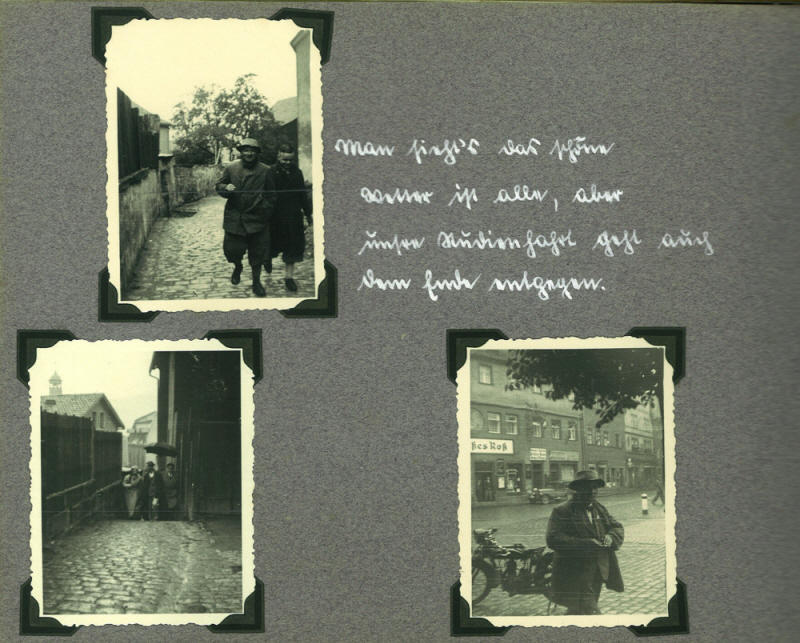 Man sieht's das schöne
Wetter ist alle, aber
unsre Studienfahrt geht auch
dem Ende entgegen.
ßes Roß